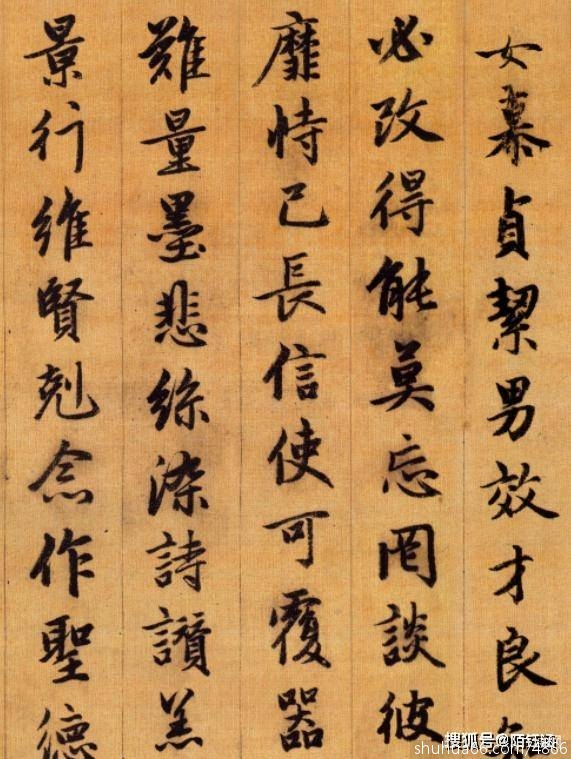 女慕貞絜男效才良
必改得能莫忘罔談彼
靡恃己長信使可覆器
難量墨悲絲染詩讚羔
景行維賢剋念作聖德
搜狐号@陌钰